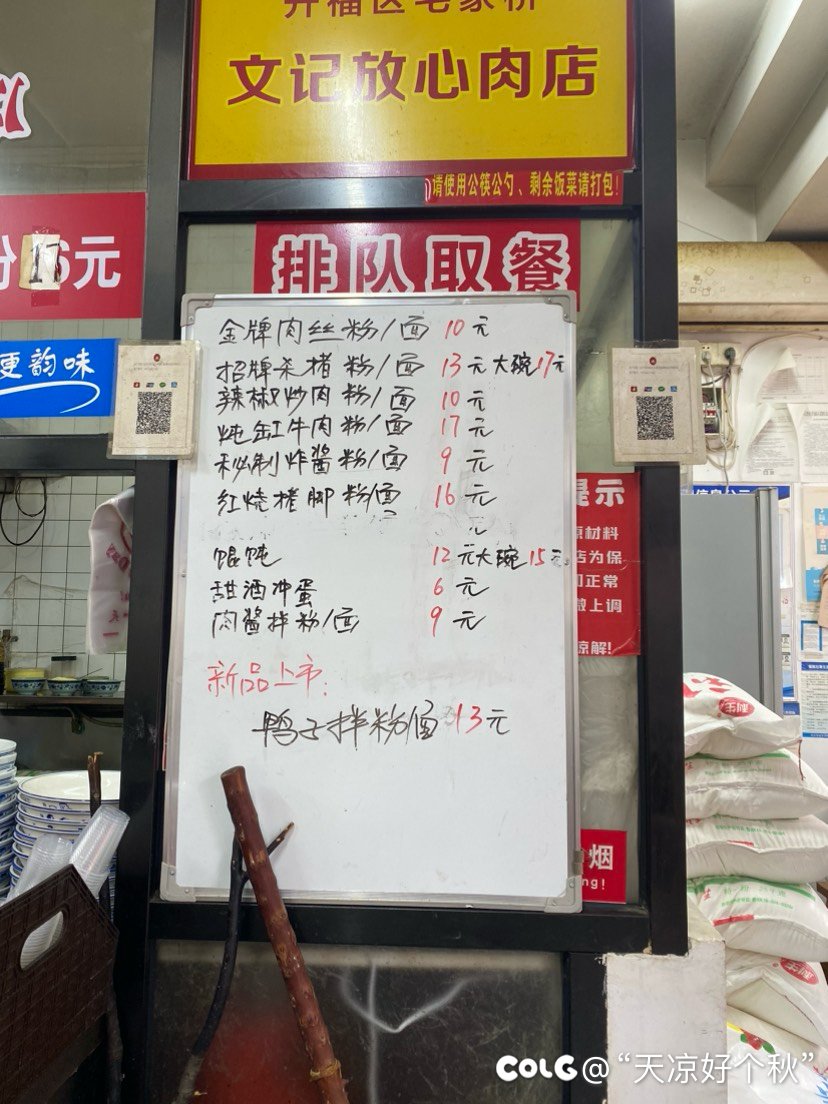 开福区毛家桥
文记放心肉店
请使用公筷公勺、剩余饭菜请打包!
排队取餐
元
更韵味
金牌肉丝粉/面 10元
招牌杀猪粉/面 13元大碗17元
辣椒炒肉粉/面 10元
炖缸牛肉粉/面 17元
秘制炸酱粉/面 9元
红烧猪脚粉/面 16元
元
馄饨 12元大碗15元
甜酒冲蛋 6元
肉酱拌粉/面 9元
新品上市:
鸭子拌粉/面 13元
提示
原材料
店为保
正常
做上调
谅解!
烟
ng!
COLG@“天凉好个秋”